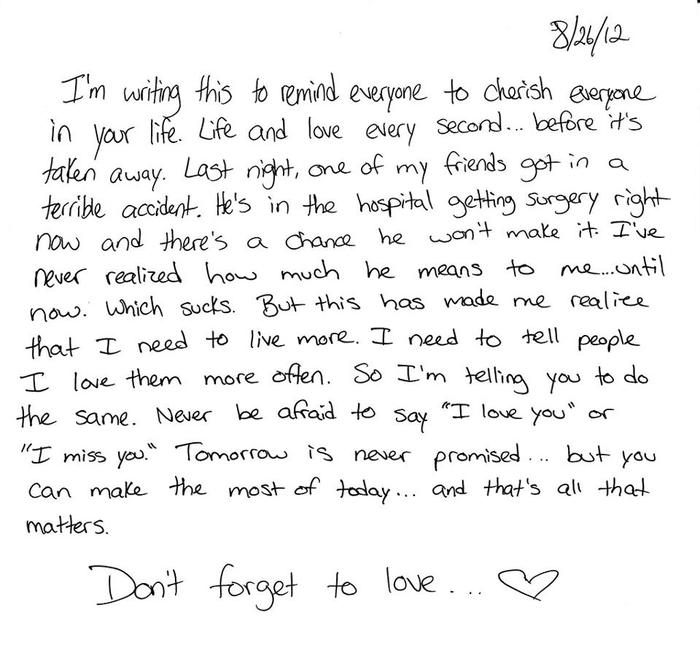 8/26/12
I'm writing this to remind everyone to cherish everyone
in your life. Life and love every second... before it's
taken away. Last night, one of my friends got in a
terrible accident. He's in the hospital getting surgery right
now and there's a chance he won't make it. I've
never realized how much he means to me...until
now. Which sucks. But this has made me realize
that I need to live more. I need to tell people
I love them more often. So I'm telling you to do
the same. Never be afraid to say "I love you" or
"I miss you." Tomorrow is never promised... but you
can make the most of today... and that's all that
matters.
Don't forget to love... ♡